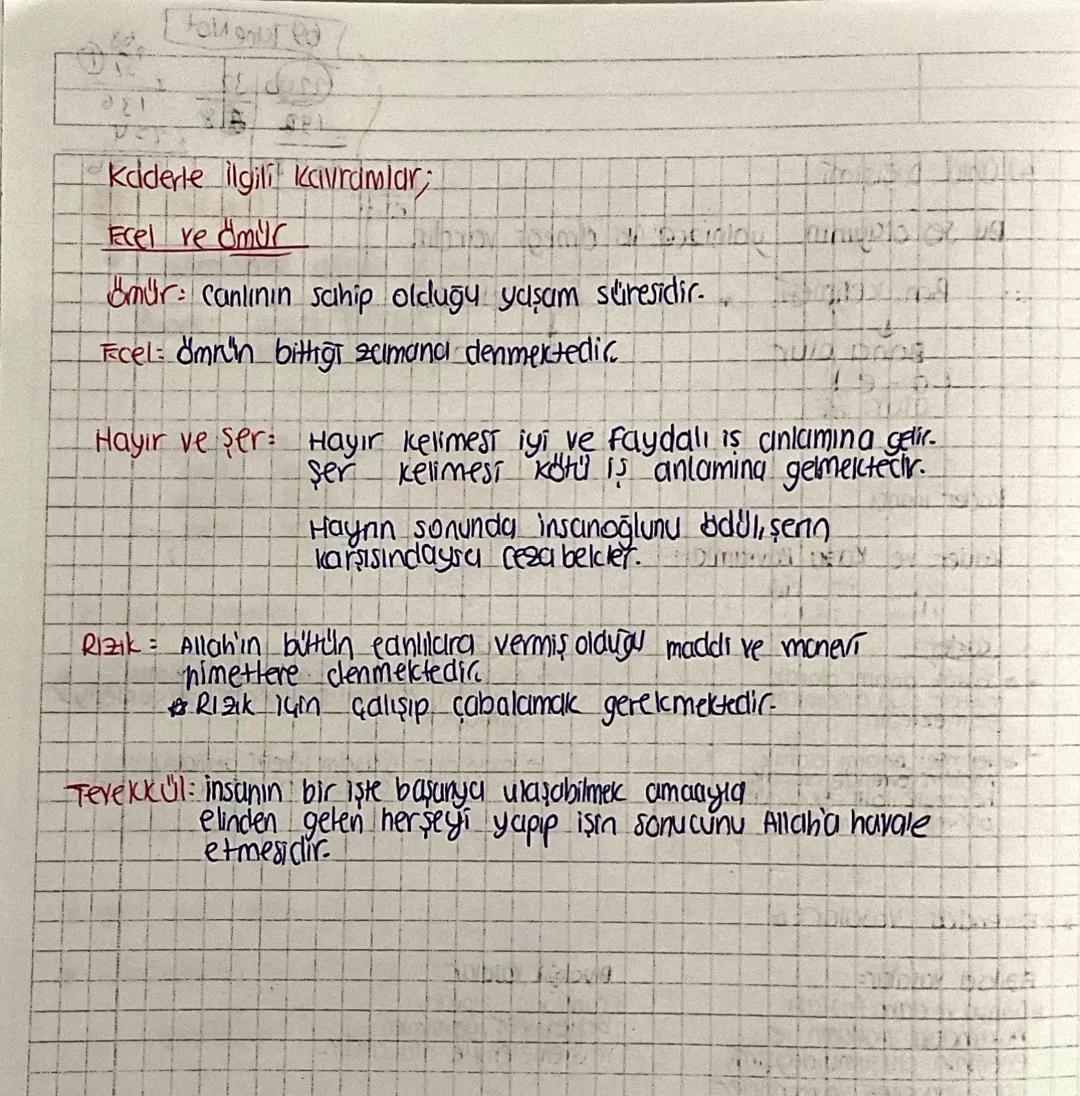 Kaderle ilgili kavramlar;
Ecel ve Ömür
Ömür: Canlının sahip olduğu yaşam süresidir.
Ecel: Ömrün bittiği zamana denmektedir.
Hayır ve Şer: Hayır kelimesi iyi ve faydalı iş anlamına gelir.
Şer kelimesi kötü iş anlamına gelmektedir.
Hayrın sonunda insanoğlunu ödül, şerin
karşısındaysa ceza bekler.
Rızık: Allah'ın bütün canlılara vermiş olduğu maddi ve manevi
nimetlere denmektedir.
Rızık için çalışıp çabalamak gerekmektedir.
Tevekkül: insanın bir işte başarıya ulaşabilmek amacıyla
elinden gelen herşeyi yapıp işin sonucunu Allah'a havale
etmesidir.